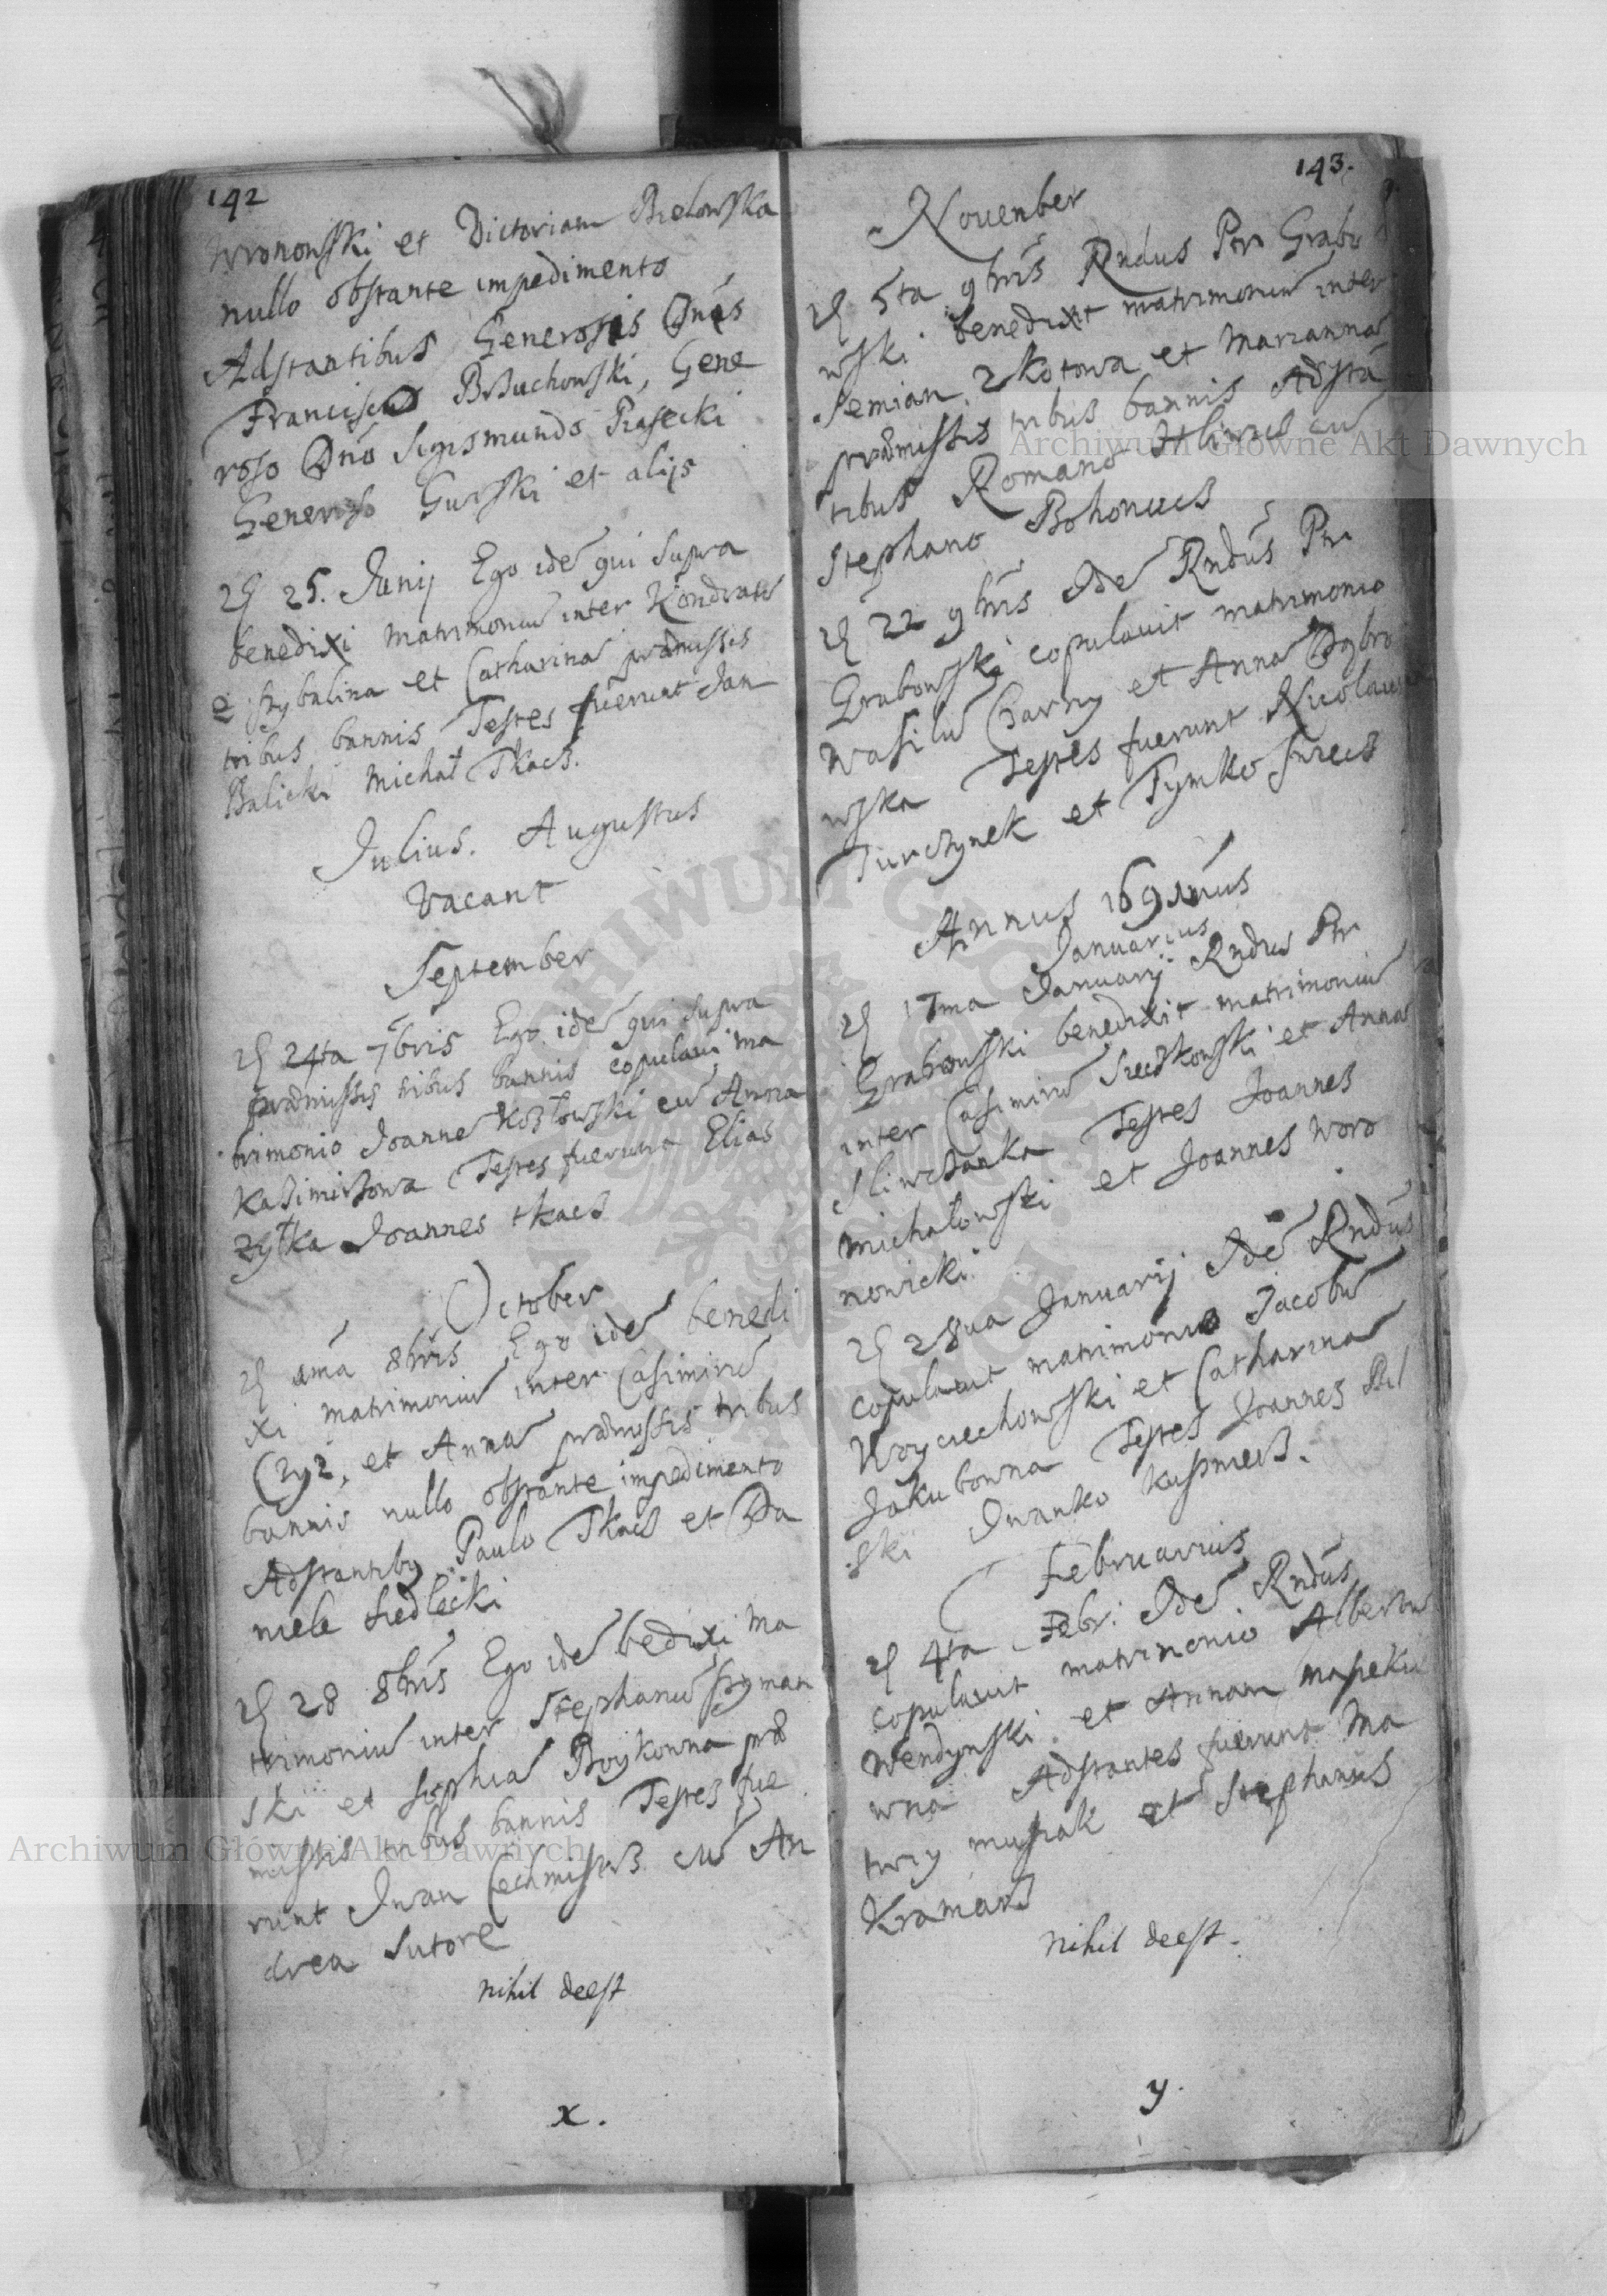 142
Wronowski et Victoriam Bielowska
nullo obstante impedimento
Adstantibus Generosis Dnis
Francisco Bduchowski, Gene
roso Dno Sigismundo Piasecki
Generoso Gurski et alijs
25. Junij Ege ide qui supra
benedixi matrimoniu inter Kondratu
et Catharina praemissis
tribus bannis Testes fuerunt Jan
Balicki Michał Tkacz.
Julius. Augustus
Vacant
September
24ta 7bris Ego ide qui supra
praemissis tribus bannis copulavi ma
trimonio Joanne Kozłowski cu Anna
Kazimirzowa Testes fuerunt Elias
Zytka Joannes tkacz
October
ama 8bris Ego ide benedi
xi matrimoniu inter Casimiru
Czyz, et Anna praemissis tribus
bannis nullo obstante impedimento
Adstantibus Paulo Tkacz et Da
niele Siedlecki
28 8bris Ego ide bedixi ma
trimoniu inter Stephanu Szyman
ski et Sophia Boykowna prae
missis tribus bannis Testes fue
runt Iwan Cechmistrz cu An
drea Sutore
nihil deest
x.
143.
November
5ta 9bris Rndus Ptr Grabo
wski benedixit matrimoniu inter
Semian. Zkotowa et Marianna
praemissis tribus bannis Adsta
tibus Romano Hlinus cu
Stephano Bohonus
22 9bris Ide Rndus Ptr
Grabowski copulavit matrimonio
Wasilu Czarny et Anna Dąbro
wska Testes fuerunt Nicolaus
Turczynek et Tymko Szwecz
Annus 1691mus
Januarius
17ma Januarij Rndus Ptr
Grabowski benedixit matrimoniu
inter Casimiru et Anna
Sliwczanka Testes Joannes
Michałowski et Joannes Woro
nowicki
28va Januarij Ide Rndus
copulavit matrimonio Jacobu
Woyciechowski et Catharina
Jakubowna Testes Joannes Bil
ski Iwanko Kusznierz.
Februarius
4ta Febr: Ide Rndus
copulavit matrimonio Albertu
Wendynski et Annam Maseku
wna Adstantes fuerunt Ma
twiy musiak et Stephanus
Kramarz
nihil deest.
y.
Archiwum Główne Akt Dawnych
Archiwum Główne Akt Dawnych